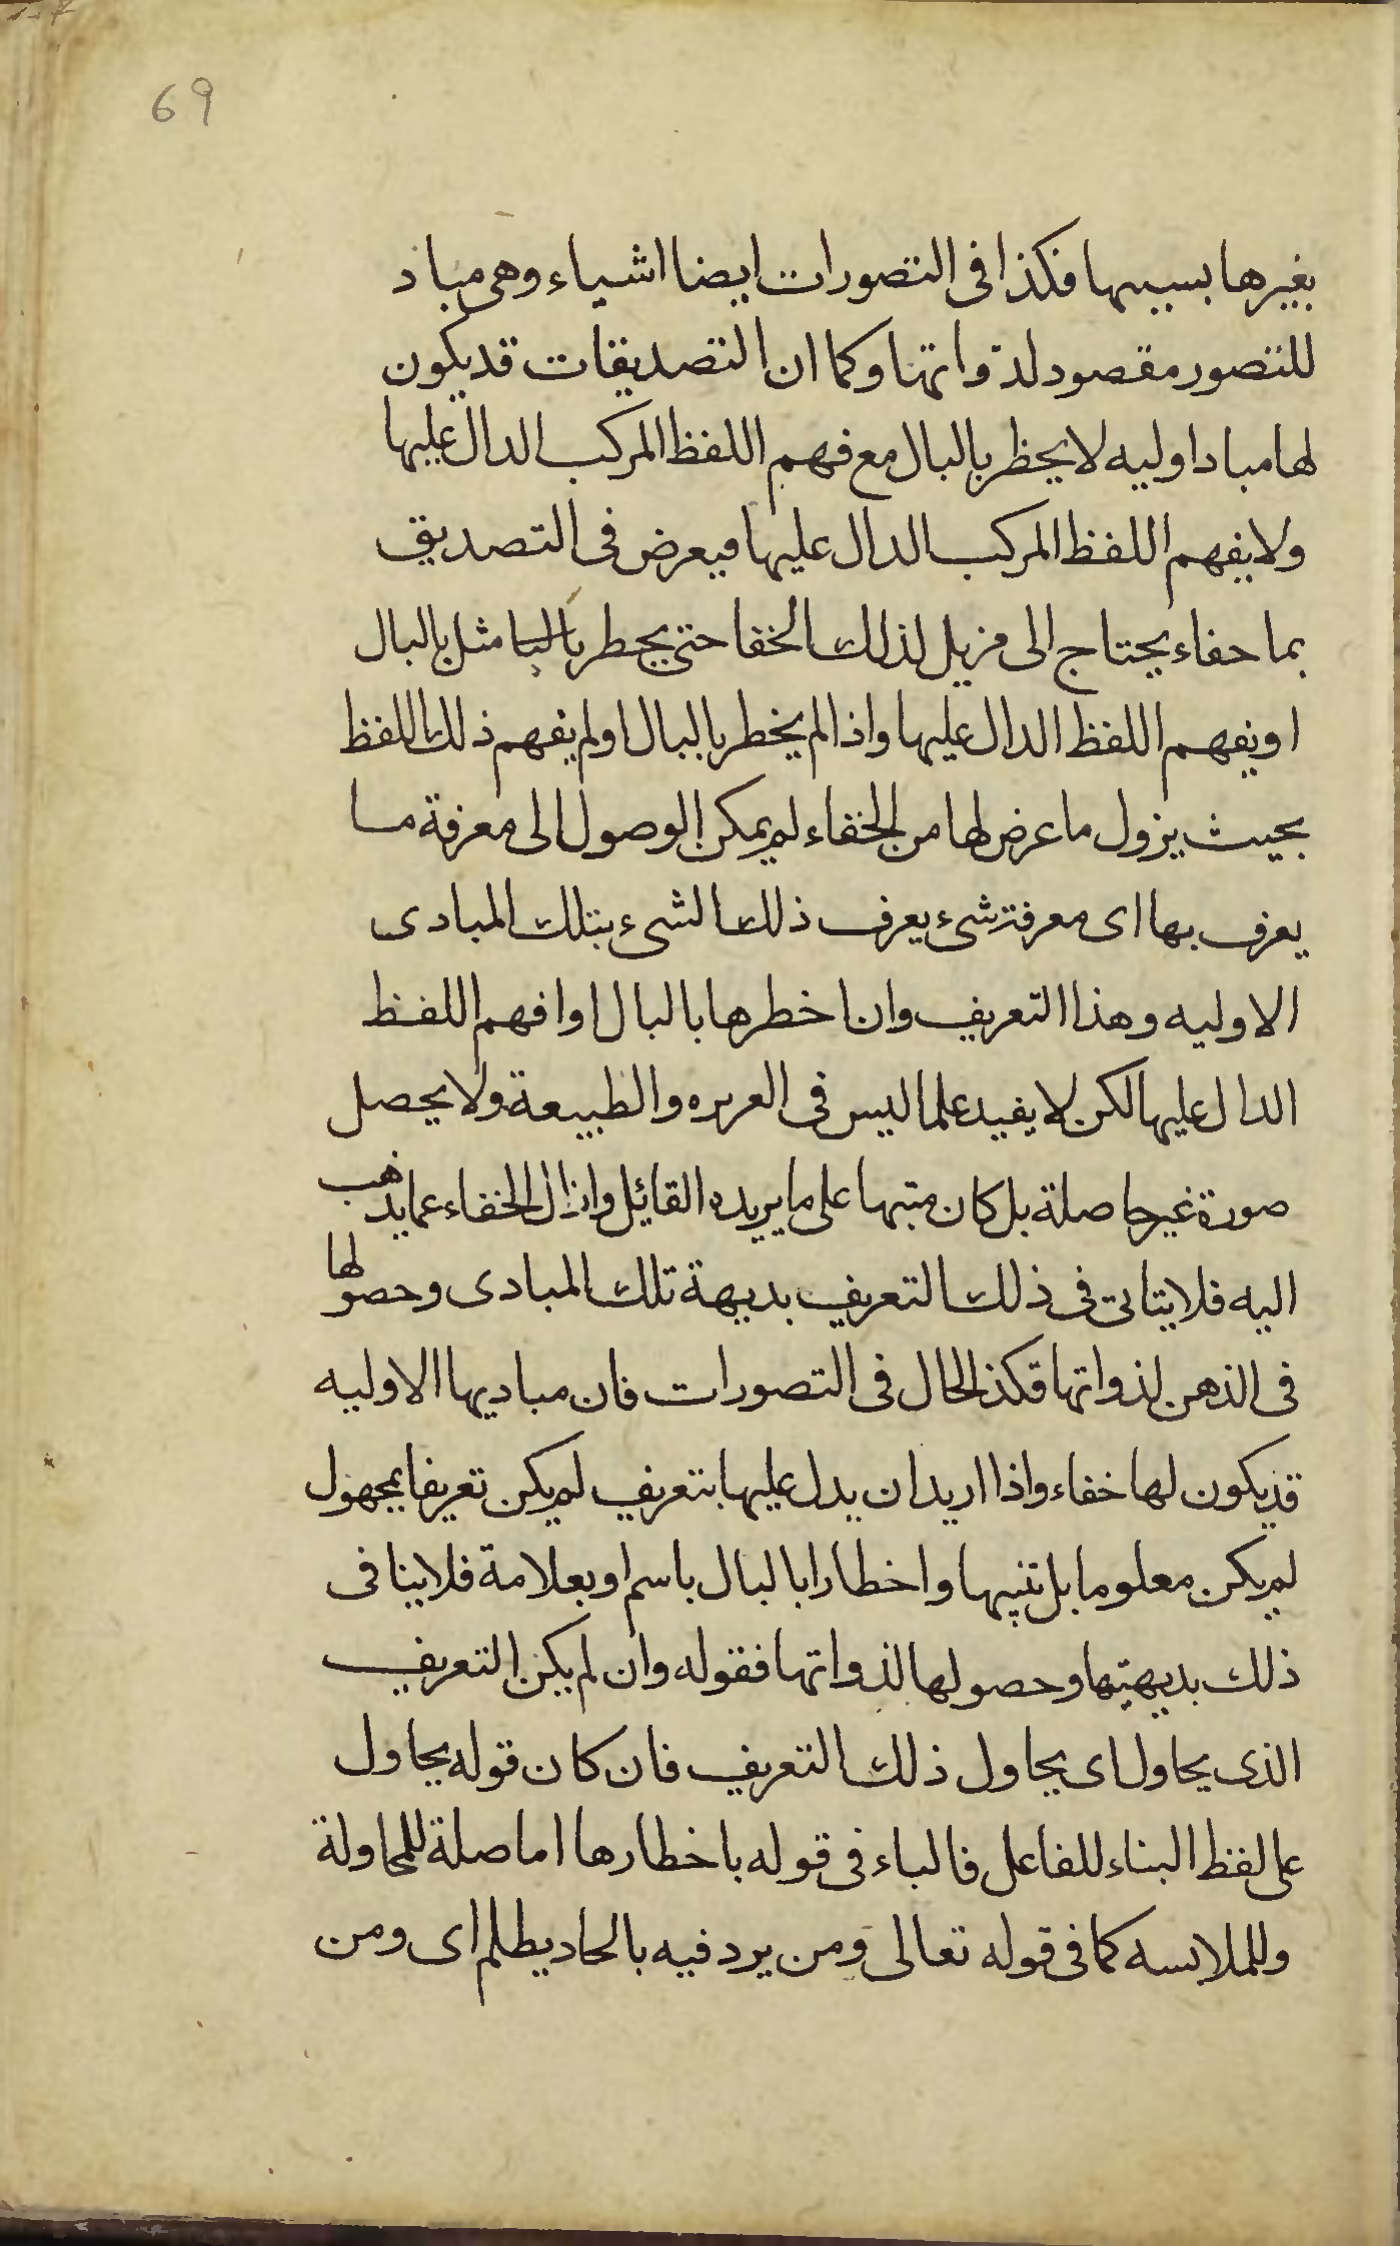 69
بغيرها بسببها فكذا فى التصورات ايضا اشياء وهى مباد
للتصور مقصود لذواتها وكما ان التصديقات قد يكون
لها مباد اوليه لا يحظر بالبال مع فهم اللفظ المركب الدال عليها
ولا يفهم اللفظ المركب الدال عليها فيعرض فى التصديق
بما حفاء يحتاج الى مزيل لذلك الخفا حتى يحطر مثل بالبال
او يفهم اللفظ الدال عليها واذا لم يخطر بالبال او لم يفهم ذلك اللفظ
بحيث يزول ما عرض لها من الخفاء لم يمكن الوصول الى معرفة ما
يعرف بها اى معرفة شىء يعرف ذلك الشىء بتلك المبادى
الاوليه وهذا التعريف وان اخطرها بالبال او افهم اللفظ
الدال عليها لكن لا يفيد علما ليس فى العريره والطبيعة ولا يحصل
صورة غير حاصلة بل كان منبها على ما يريده القائل وازال الخفاء عما يذهب
اليه فلا يتاتى فى ذلك التعريف بديهة تلك المبادى وحصولها
فى الذهن لذواتها فكذ الحال فى التصورات فان مباديها الاوليه
قد يكون لها خفاء واذا اريد ان يدل عليها بتعريف لم يكن تعريفا بمجهول
لم يكن معلوما بل تنبيها واخطارا بالبال باسم او بعلامة فلا ينافى
ذلك بديهتها وحصولها لذواتها فقوله وان لم يكن التعريف
الذى يحاول اى يحاول ذلك التعريف فان كان قوله يحاول
على لفظ البناء للفاعل فالباء فى قوله باخطارها اما صلة للمحاولة
وللملابسه كما فى قوله تعالى ومن يرد فيه بالحاد بظلم اى ومن